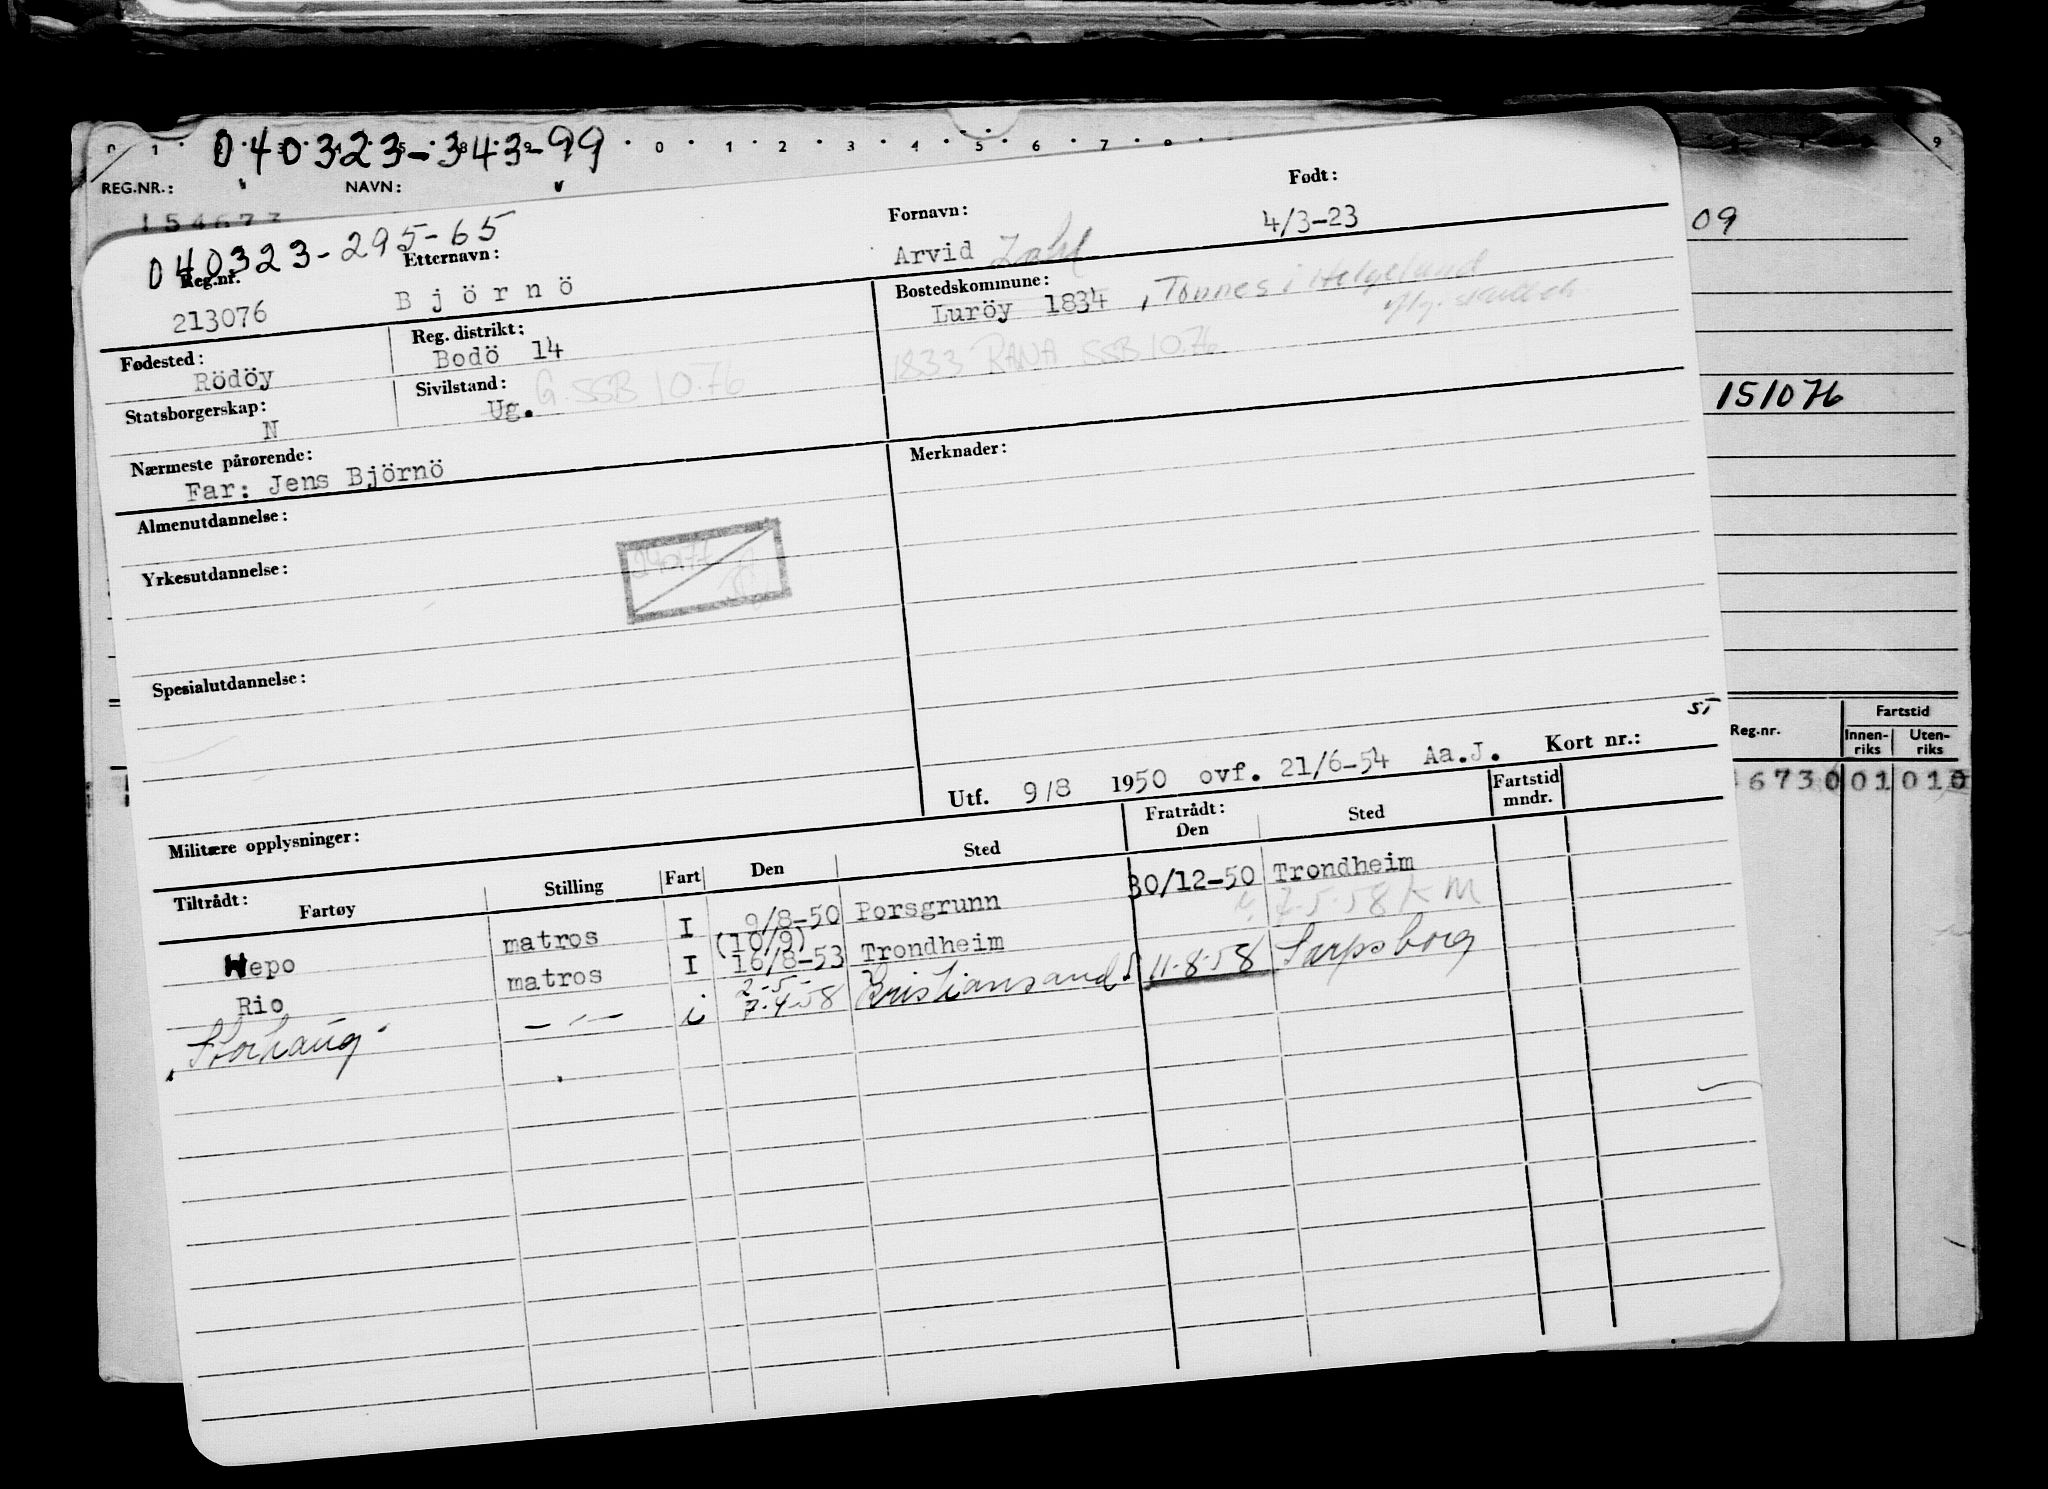 0 4 0 3 2 3 - 3 4 3 - 9 9
0 1 2 3 4 5 6 7 8 9
REG.NR.: NAVN:
154673
040323-295-65
Reg.nr. Etternavn: Fornavn: Født:
213076 Björnö Arvid Zahl 4/3-23
Fødested: Reg. distrikt: Bostedskommune:
Rödöy Bodö 14 Luröy 1834, Tonnes i Helgeland
1833 RANA SSB 10.76
Statsborgerskap: Sivilstand:
N Ug. G. SSB 10.76
Nærmeste pårørende: Merknader:
Far: Jens Björnö
Almenutdannelse:
Yrkesutdannelse:
Spesialutdannelse:
Utf. 9/8 1950 ovf. 21/6-54 Aa.J. Kort nr.:
Militære opplysninger:
Tiltrådt: Fratrådt: Fartstid mndr.
Fartøy Stilling Fart Den Sted Den Sted
Hepo matros I 9/8-50 Porsgrunn 30/12-50 Trondheim
(10/9)
Rio matros I 16/8-53 Trondheim 7.5.58 K M
2-5-
Storhaug - " - i 7.4.58 Kristiansand S 11.8.58 Sarpsborg
09
151076
Reg.nr. Fartstid
Innenriks Utenriks
6730 01 010